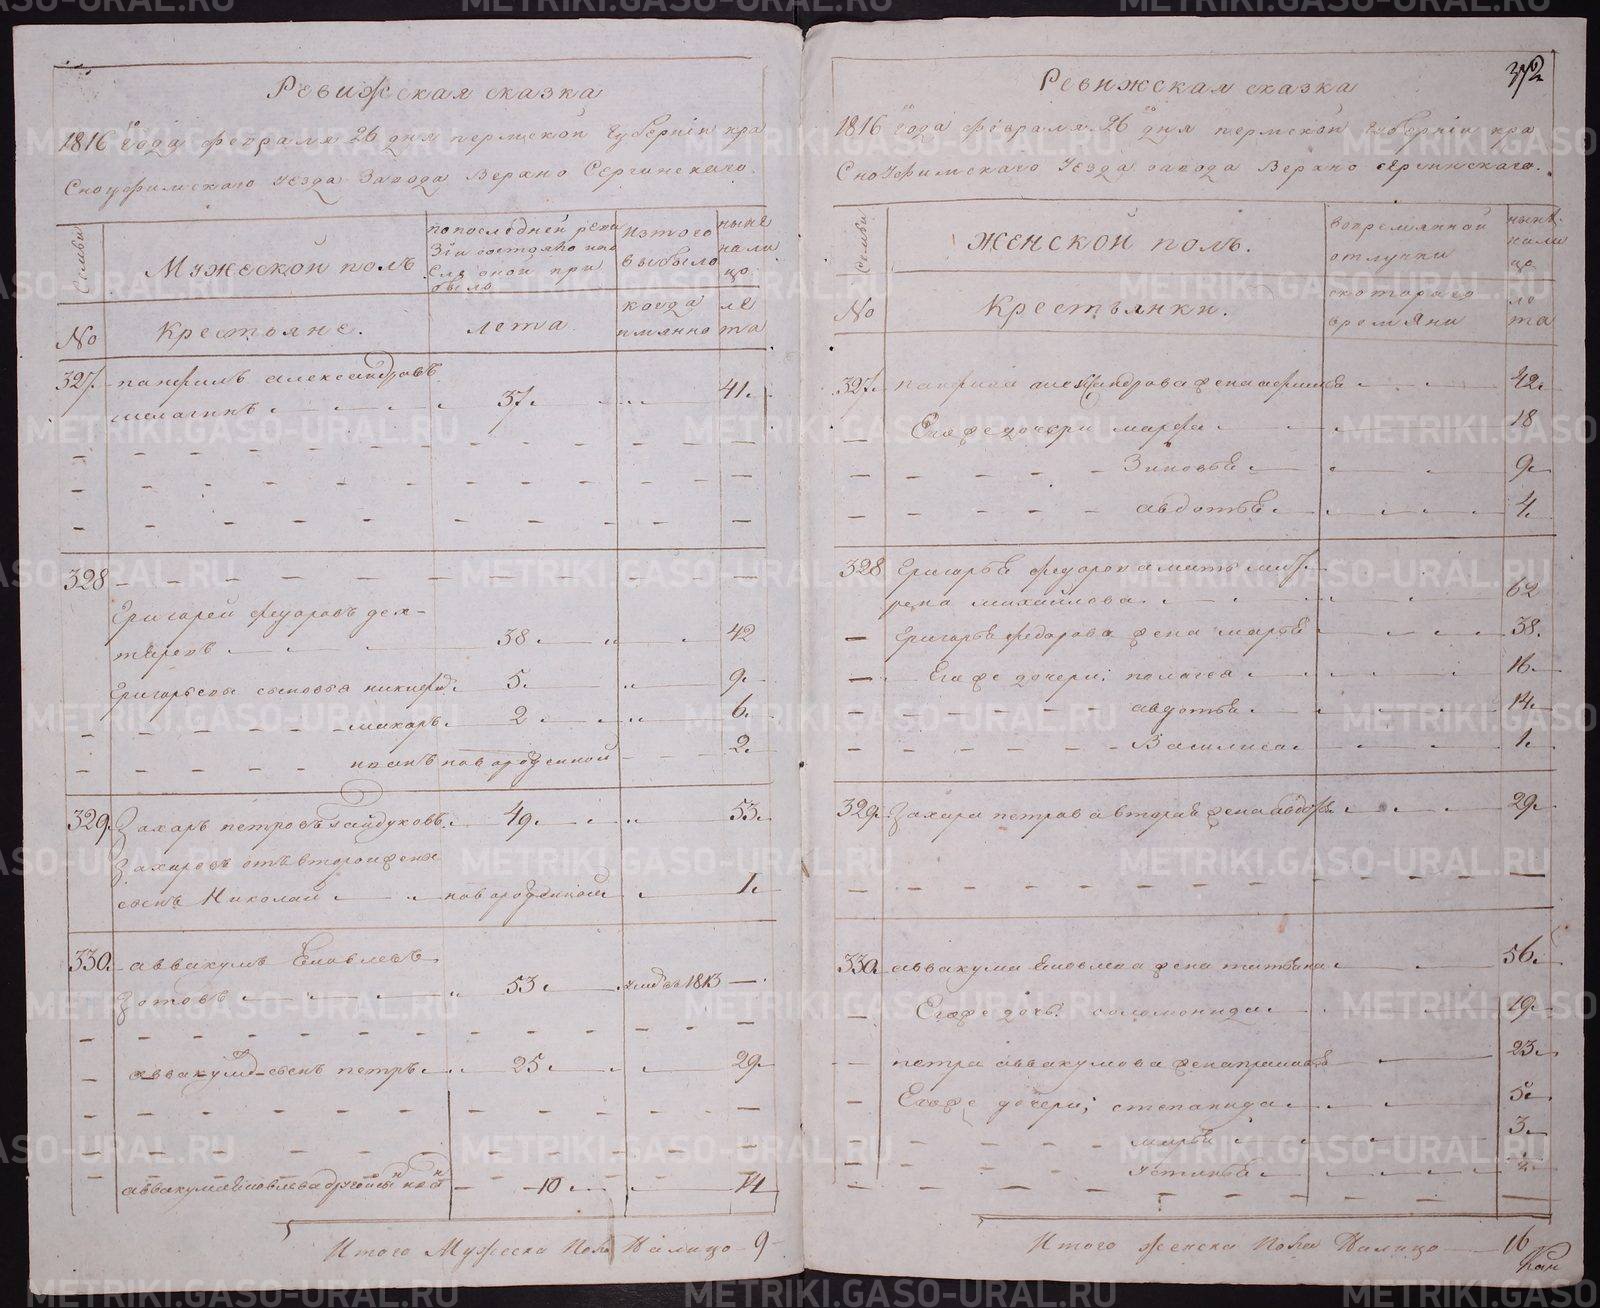 Ревижская сказка
1816го года февраля 26 дня пермской губернiи кра
Сноуфимскаго уезда завода Верхно Сергинскаго.
Семьи
Мужеской полъ
по последней реви
Зiи состояло
были
Изтого
выбыло
ныне
нали
цо
No
Крестьяне.
лета
когда
имянно
ле
та
327. панфилъ александровъ
шелагинъ 37. 41.
328
Григорей федоровъ дех-
тяревъ 38 42
Григорьевы сыновья никифор 5. 9.
макаръ. 2 6.
новорожденной 2.
329. Захаръ петровъ гайдуковъ. 49. 53.
Захаровъ отъ второй жены
сынъ Николай новорожденной 1.
330. аввакумъ Яковлевъ
Зотовъ 53 1813
аввакумо сынъ петръ 25 29
аввакума Яковлева другой сынъ 10 14
Итого Мужеска Пола Налицо 9
372
Ревижская сказка
1816го года февраля 26го дня пермской губернiи кра
Сноуфимскаго уезда завода Верхно сергинскаго.
Семьи
Женской полъ.
во временной
отлучки
ныне
нали
цо
No
Крестьянки.
скотораго
времяни
ле
та
327. панфила александрова жена афимья 42.
Его же дочери марфа 18
Зиновья 9.
авдотья 4.
328 Григорья федорова мать мат
рена михайлова 62
Григорья федорова жена марья 38.
Его же дочери; полагея 16.
авдотья 14.
Василиса 1.
329. Захара петрова вторая жена авдотья 29.
330. аввакума Яковлева жена татьяна 56.
Его же дочь соломонида 19.
петра аввакумова жена прасковья 23.
Его же дочери; степанида 5.
марья 3.
устинья
Итого женска Пола Налицо 16